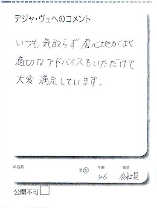 デジャ・ヴューへのコメント
いつも気取らず居心地がよく
適切なアドバイスもいただけて
大変満足しています。
公開不可